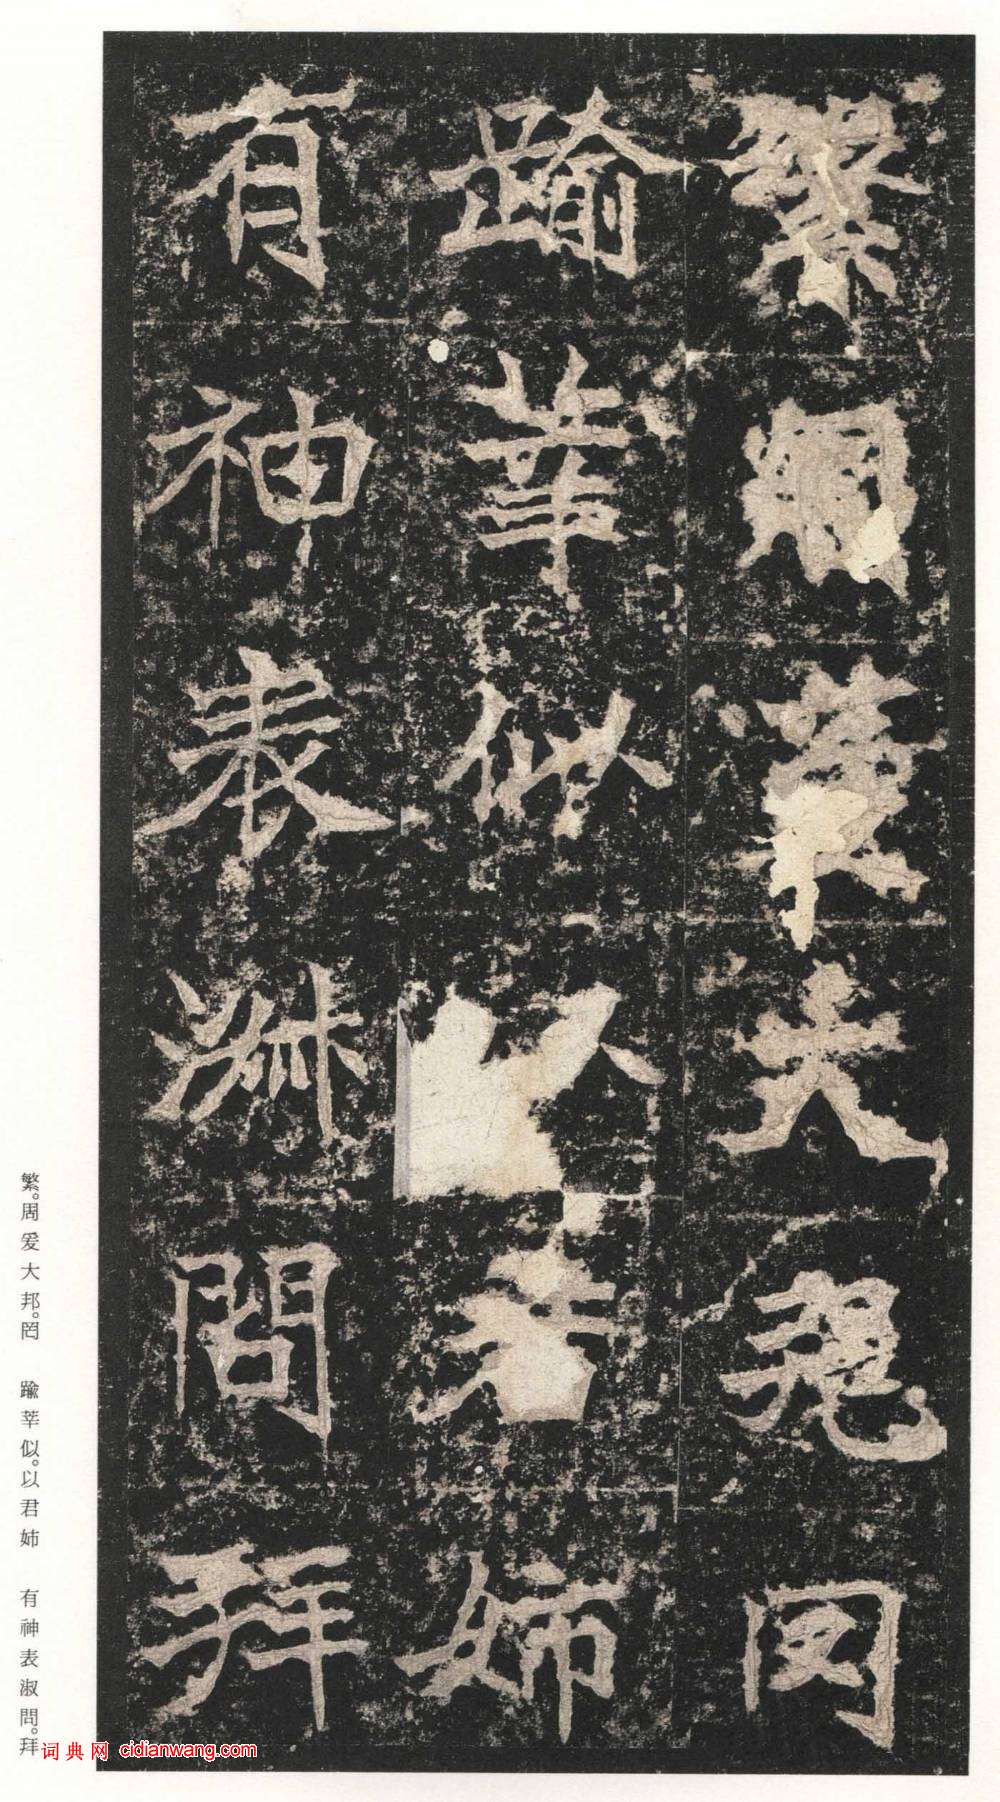 繁周爰大邦罔
踰莘似以君姉
有神表淑問拜
繁。周爰大邦。罔　踰莘似。以君姉　有神表淑問。拜
词典网 cidianwang.com